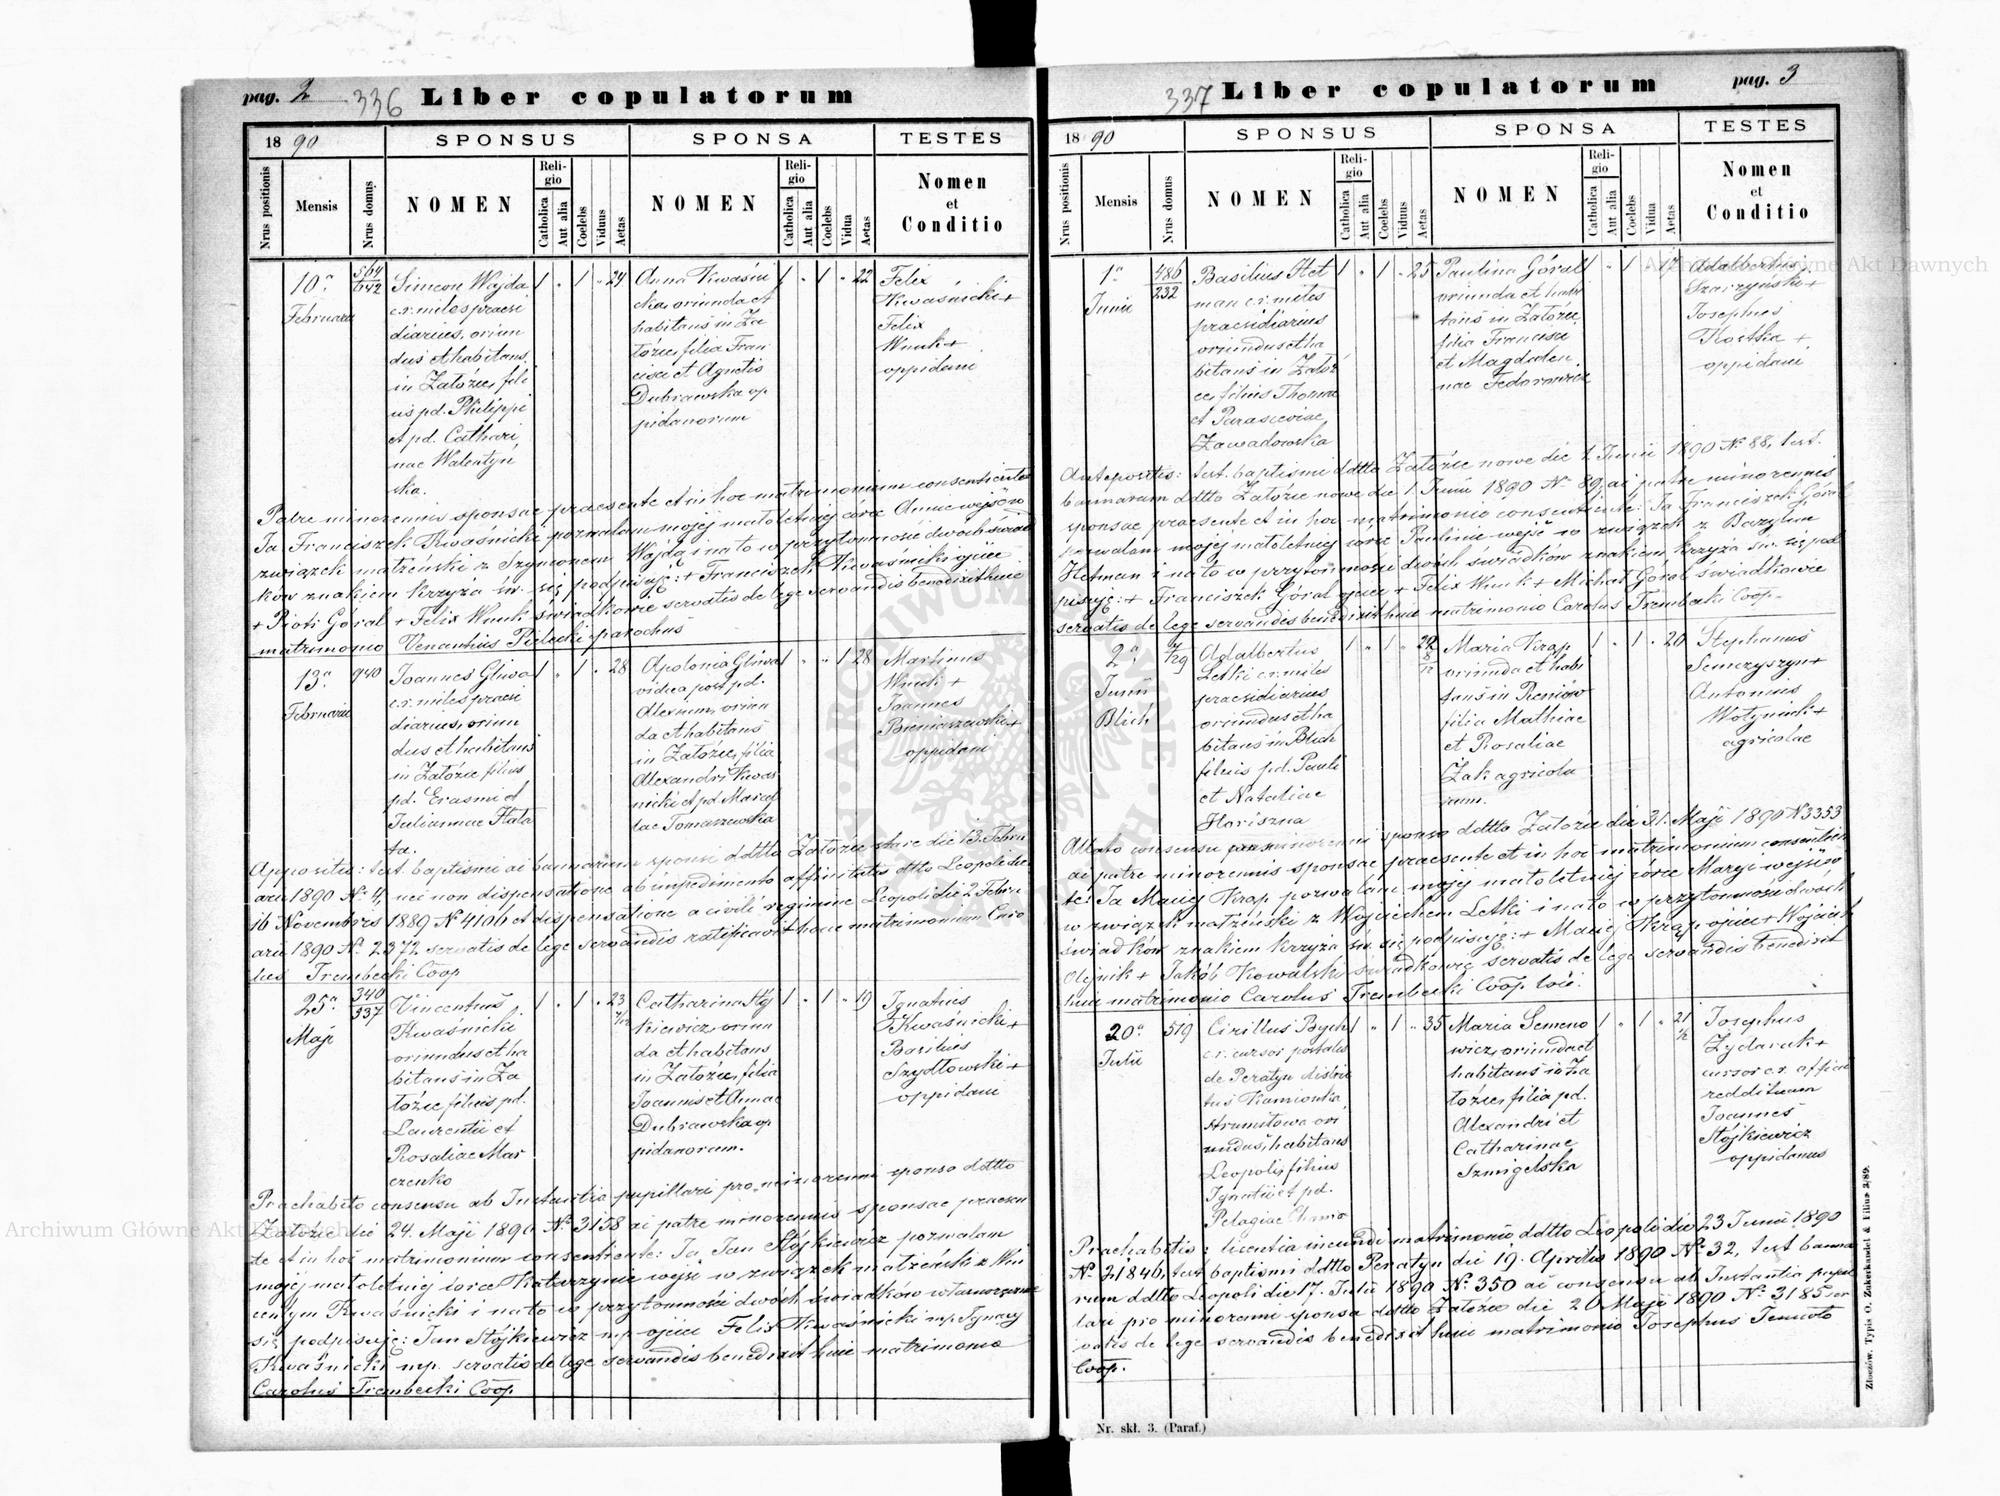 pag. 2 336 Liber copulatorum
18 90
SPONSUS
SPONSA
TESTES
Nrus positionis
Mensis
Nrus domus
NOMEN
Religio
Catholica
Aut alia
Coelebs
Viduus
Aetas
NOMEN
Religio
Catholica
Aut alia
Coelebs
Vidua
Aetas
Nomen
et
Conditio
10a
Februarii
564
642
Simeon Wojda
c.r. miles praesi
diarius, oriun
dus et habitans
in Załoźce, fili
us pd. Philippi
et pd. Cathari
nae Walentyń
ska.
1 " 1 " 24
Anna Kwaśni
cka, oriunda et
habitans in Za
łoźce, filia Fran
cisci et Agnetis
Dubrawska op
pidanorum
1 " 1 " 22
Felix
Kwaśnicki +
Felix
Wnuk +
oppidani
Patre minorennis sponsae praesente et in hoc matrimonium consentiente
Ja Franciszek Kwaśnicki pozwalam mojej małoletniej córce Annie wejść w
związek małżeński z Szymonem Wojdą i na to w przytomności dwóch świad
ków znakiem krzyża św. się podpisuję: + Franciszek Kwaśnicki ojciec
+ Piotr Góral + Felix Wnuk świadkowie servatis de lege servandis benedixit huic
matrimonio Venantius Pilecki parochus
13a
Februarii
940
Joannes Gliwa
c.r. miles praesi
diarius, oriun
dus et habitans
in Załoźce filius
pd. Erasmi et
Juliannae Hała
ta.
1 " 1 " 28
Apolonia Gliwa
vidua post pd.
Alexium, oriun
da et habitans
in Załoźce, filia
Alexandri Kwaś
nicki et pd. Marcel
lae Tomaszewska
1 " " 1 28
Martinus
Wnuk +
Joannes
Bieniaszewski +
oppidani
Appositis: test. baptismi ac bannorum sponsi ddtto Załoźce stare die 13. Febru
arii 1890 No 4, nec non dispensatione ab impedimento affinitatis ddtto Leopoli die
16 Novembris 1889 No 4106 et dispensatione a civili regimine Leopoli die 2 Febru
arii 1890 No 2372 servatis de lege servandis ratificavit hanc matrimonium Caro
lus Trembecki Coop
25a
Maji
340
337
Vincentius
Kwaśnicki
oriundus et ha
bitans in Za
łoźce filius pd.
Laurentii et
Rosaliae Mar
czenko
1 " 1 " 23
Catharina Stój
kiewicz oriun
da et habitans
in Załoźce, filia
Joannis et Annae
Dubrawska op
pidanorum.
1 " 1 " 19
Ignatius
Kwaśnicki +
Basilius
Szydłowski +
oppidani
Praehabito consensu ab Instantia pupillari pro minorenni sponso ddtto
Załoźce die 24. Maji 1890 No 3158 ac patre minorennis sponsae praesen
te et in hoc matrimonium consentiente: Ja Jan Stójkiewicz pozwalam
mojej małoletniej córce Katarzynie wejść w związek małżeński z Win
centym Kwaśnicki i na to w przytomności dwóch świadków własnoręcznie
się podpisuję: Jan Stójkiewicz mp ojciec Felix Kwaśnicki mp. Ignacy
Kwaśnicki mp. servatis de lege servandis benedixit huic matrimonio
Carolus Trembecki Coop
337 Liber copulatorum pag. 3
18 90
SPONSUS
SPONSA
TESTES
Nrus positionis
Mensis
Nrus domus
NOMEN
Religio
Catholica
Aut alia
Coelebs
Viduus
Aetas
NOMEN
Religio
Catholica
Aut alia
Coelebs
Vidua
Aetas
Nomen
et
Conditio
1a
Junii
486
232
Basilius Het
man c.r. miles
praesidiarius
oriundus et ha
bitans in Załoź
ce, filius Thomae
et Parasceviae
Zawadowska
1 " 1 " 25
Paulina Góral
oriunda et habi
tans in Załoźce
filia Francisci
et Magdale
nae Fedorowicz
1 " 1 " 17
Adalbertus
Szaszyński +
Josephus
Kostka +
oppidani
Antepositis: test. baptismi ddtto Załoźce nowe die 1 Junii 1890 No 88, test.
bannorum ddtto Załoźce nowe die 1. Junii 1890 No 89, ac patre minorennis
sponsae praesente et in hoc matrimonio consentiente: Ja Franciszek Góral
pozwalam mojej małoletniej córce Paulinie wejść w związek z Bazylim
Hetman i na to w przytomności dwóch świadków znakiem krzyża św. się pod
pisuję: + Franciszek Góral ojciec + Felix Wnuk + Michał Góral świadkowie
servatis de lege servandis benedixit huic matrimonio Carolus Trembecki Coop.
2a
Junii
Blich
29
Adalbertus
Letki c.r. miles
praesidiarius
oriundus et ha
bitans in Blich
filius pd. Pauli
et Nataliae
Horiszna
1 " 1 "
Maria Krap
oriunda et habi
tans in Reniów
filia Mathiae
et Rosaliae
Żak agricola
rum.
1 " 1 " 20
Stephanus
Semczyszyn +
Antonius
Wołyniuk +
agricolae
Allato consensu pro minorenni sponso ddtto Załoźce die 31. Maji 1890 N 3353
ac patre minorennis sponsae praesente et in hoc matrimonium consentien
te: Ja Maciej Krap pozwalam mojej małoletniej córce Maryi wejść
w związek małżeński z Wojciechem Letki i na to w przytomności dwóch
świadków znakiem krzyża św. się podpisuję: + Maciej Krap ojciec + Wojciech
Olejnik + Jakób Kowalski świadkowie servatis de lege servandis benedixit
huic matrimonio Carolus Trembecki Coop loci.
20a
Julii
519
Cirillus Bych
c.r. cursor postalis
de Peratyn distric
tus Kamionka
Strumiłowa ori
undus, habitans
Leopoli, filius
Ignatii et pd.
Pelagiae
1 " 1 " 35
Maria Semeno
wicz, oriunda et
habitans in Za
łoźce, filia pd.
Alexandri et
Catharinae
Szmigelska
1 " 1 " 21
Josephus
Żydaruk +
cursor c.r. officii
reddituum
Joannes
Stójkiewicz
oppidanus
Praehabitis: licentia ineundi matrimonii ddtto Leopoli die 23 Junii 1890
No 21846, test baptismi ddtto Peratyn die 19. Aprilis 1890 No 32, test banno
rum ddtto Leopoli die 17. Julii 1890 No 350 ac consensu ab Instantia pupil
lari pro minorenni sponsa ddtto Załoźce die 26 Maji 1890 No 3185 ser
vatis de lege servandis benedixit huic matrimonio Josephus
Coop.
Nr. skł. 3. (Paraf.)
Złoczów. Typis O. Zukerkandel & Filius 3/89.
Archiwum Główne Akt Dawnych
Archiwum Główne Akt Dawnych